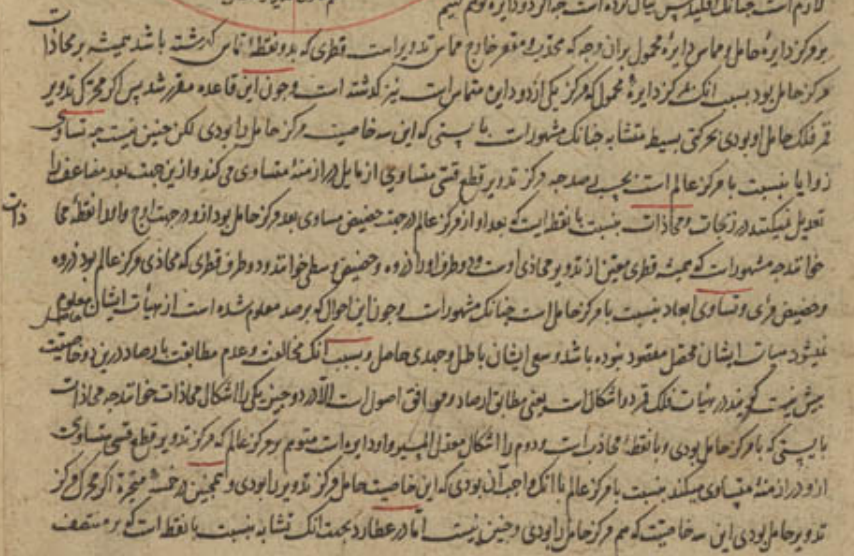 لازم است چنانک اقلیدس بیان کرده است چه اگر دو دایره توهم کنیم
بر مرکز دایرهٔ حامل و مماس دایرهٔ محمول بران وجه که محدب و مقعر خارج مماس تدویر است قطری که بدو نقطهٔ تماس گذشته باشد همیشه بر محاذات
مرکز حامل بود بسبب انک بر مرکز دایرهٔ محمول که مرکز یکی از دو دایره متماس است نیز گذشته است و چون این قاعده مقرر شد پس اگر محرک تدویر
قمر فلک حامل او بودی بحرکتی بسیط متشابه چنانک مشهور است بایستی که این سه خاصیت مرکز حامل را بودی لکن چنین نیست چه تساوی
زوایا بنسبت با مرکز عالم است بحسب رصد چه مرکز تدویر قطع قسی متساوی از مایل در ازمنهٔ متساوی می کند و ازین جهت بعد مضاعف را
تعدیل نمیکنند در زیجات و محاذات بنسبت با نقطه ایست که بعد او از مرکز عالم در جهت حضیض مساوی بعد مرکز حامل بود ازو در جهت اوج و انرا نقطهٔ محا
ذات
خوانند چه مشهور است که همیشه قطری معین از تدویر محاذی اوست و دو طرف او را ذروه و حضیض وسطی خوانند و دو طرف قطری که محاذی مرکز عالم بود ذروه
و حضیض مرئی و تساوی ابعاد بنسبت با مرکز حامل است چنانک مشهور است و چون این احوال که برصد معلوم شده است از هیأت ایشان معلوم
حاصل
نمیشود هیأت ایشان مختل معقود نبوده باشد و سعی ایشان باطل و جدی حاصل و بسبب انک مخالفت و عدم مطابقت با رصاد درین دو خاصیت
بیش نیست گویند در هیأت فلک قمر دو اشکال است یعنی مطابق ارصاد و موافق اصول است الا در دو چیز یکی را اشکال محاذات خوانند چه محاذات
بایستی که با مرکز حامل بودی و با نقطهٔ محاذات است و دوم را اشکال معدل المسیر و او دایره است متوهم بر مرکز عالم که مرکز تدویر قطع قسی متساوی
ازو در ازمنهٔ متساوی میکند بنسبت با مرکز عالم با انک واجب آن بودی که این خاصیت حامل مرکز تدویر را بودی و همچنین در خمسهٔ متحیره اگر محرک مرکز
تدویر حامل بودی این سه خاصیت که هم مرکز حامل را بودی و چنین نیست اما در عطارد بجهت انک تشابه بنسبت با نقطه است که بر منتصف